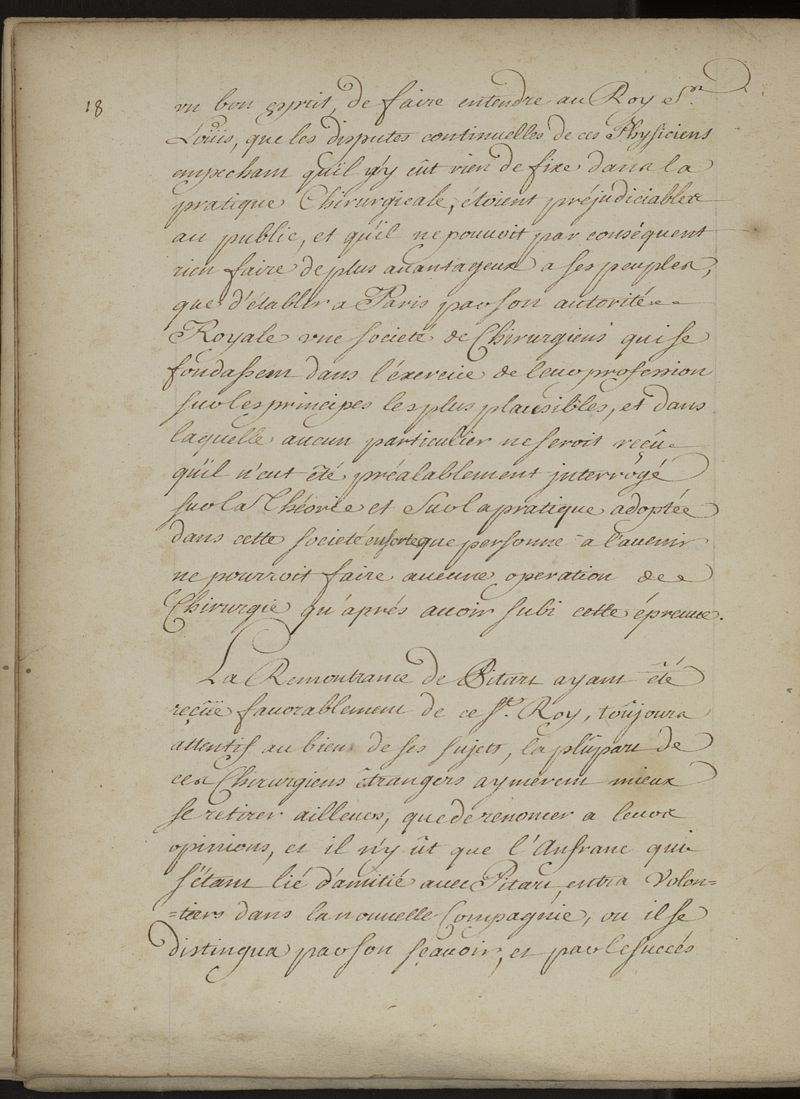 18
un bon esprit, de faire entendre au Roy St.
Loüis, que les disputes continuelles de ces Physiciens
empechant qu'il n'y eût rien de fixe dans la
pratique Chirurgicale, étoient préjudiciables
au public, et qu'il ne pouvoit par conséquent
rien faire de plus avantageux a ses peuples,
que d'établir a Paris par son autorité
Royale une societé de Chirurgiens qui se
fondassent dans l'éxercice de leur profession
sur les principes les plus plausibles, et dans
laquelle aucun particulier ne seroit reçû
qu'il n'eut êté préalablement interrogé
sur la Théorie et sur la pratique adoptée
dans cette societé ensorte que personne a l'avenir
ne pourroit faire aucune operation de
Chirurgie qu'aprés avoir subi cette épreuve.
La Remontrance de Pitart ayant êté
reçûë favorablement de ce St. Roy, toûjours
attentif au bien de ses sujets, la plûpart de
ces Chirurgiens étrangers aymerent mieux
se retirer ailleurs, que de renoncer a leurs
opinions, et il n'y eût que l'Anfranc qui
s'étant lié d'amitié avec Pitart, entra volon=
=tiers dans la nouvelle Compagnie, ou il se
distingua par son sçavoir, et par le succés